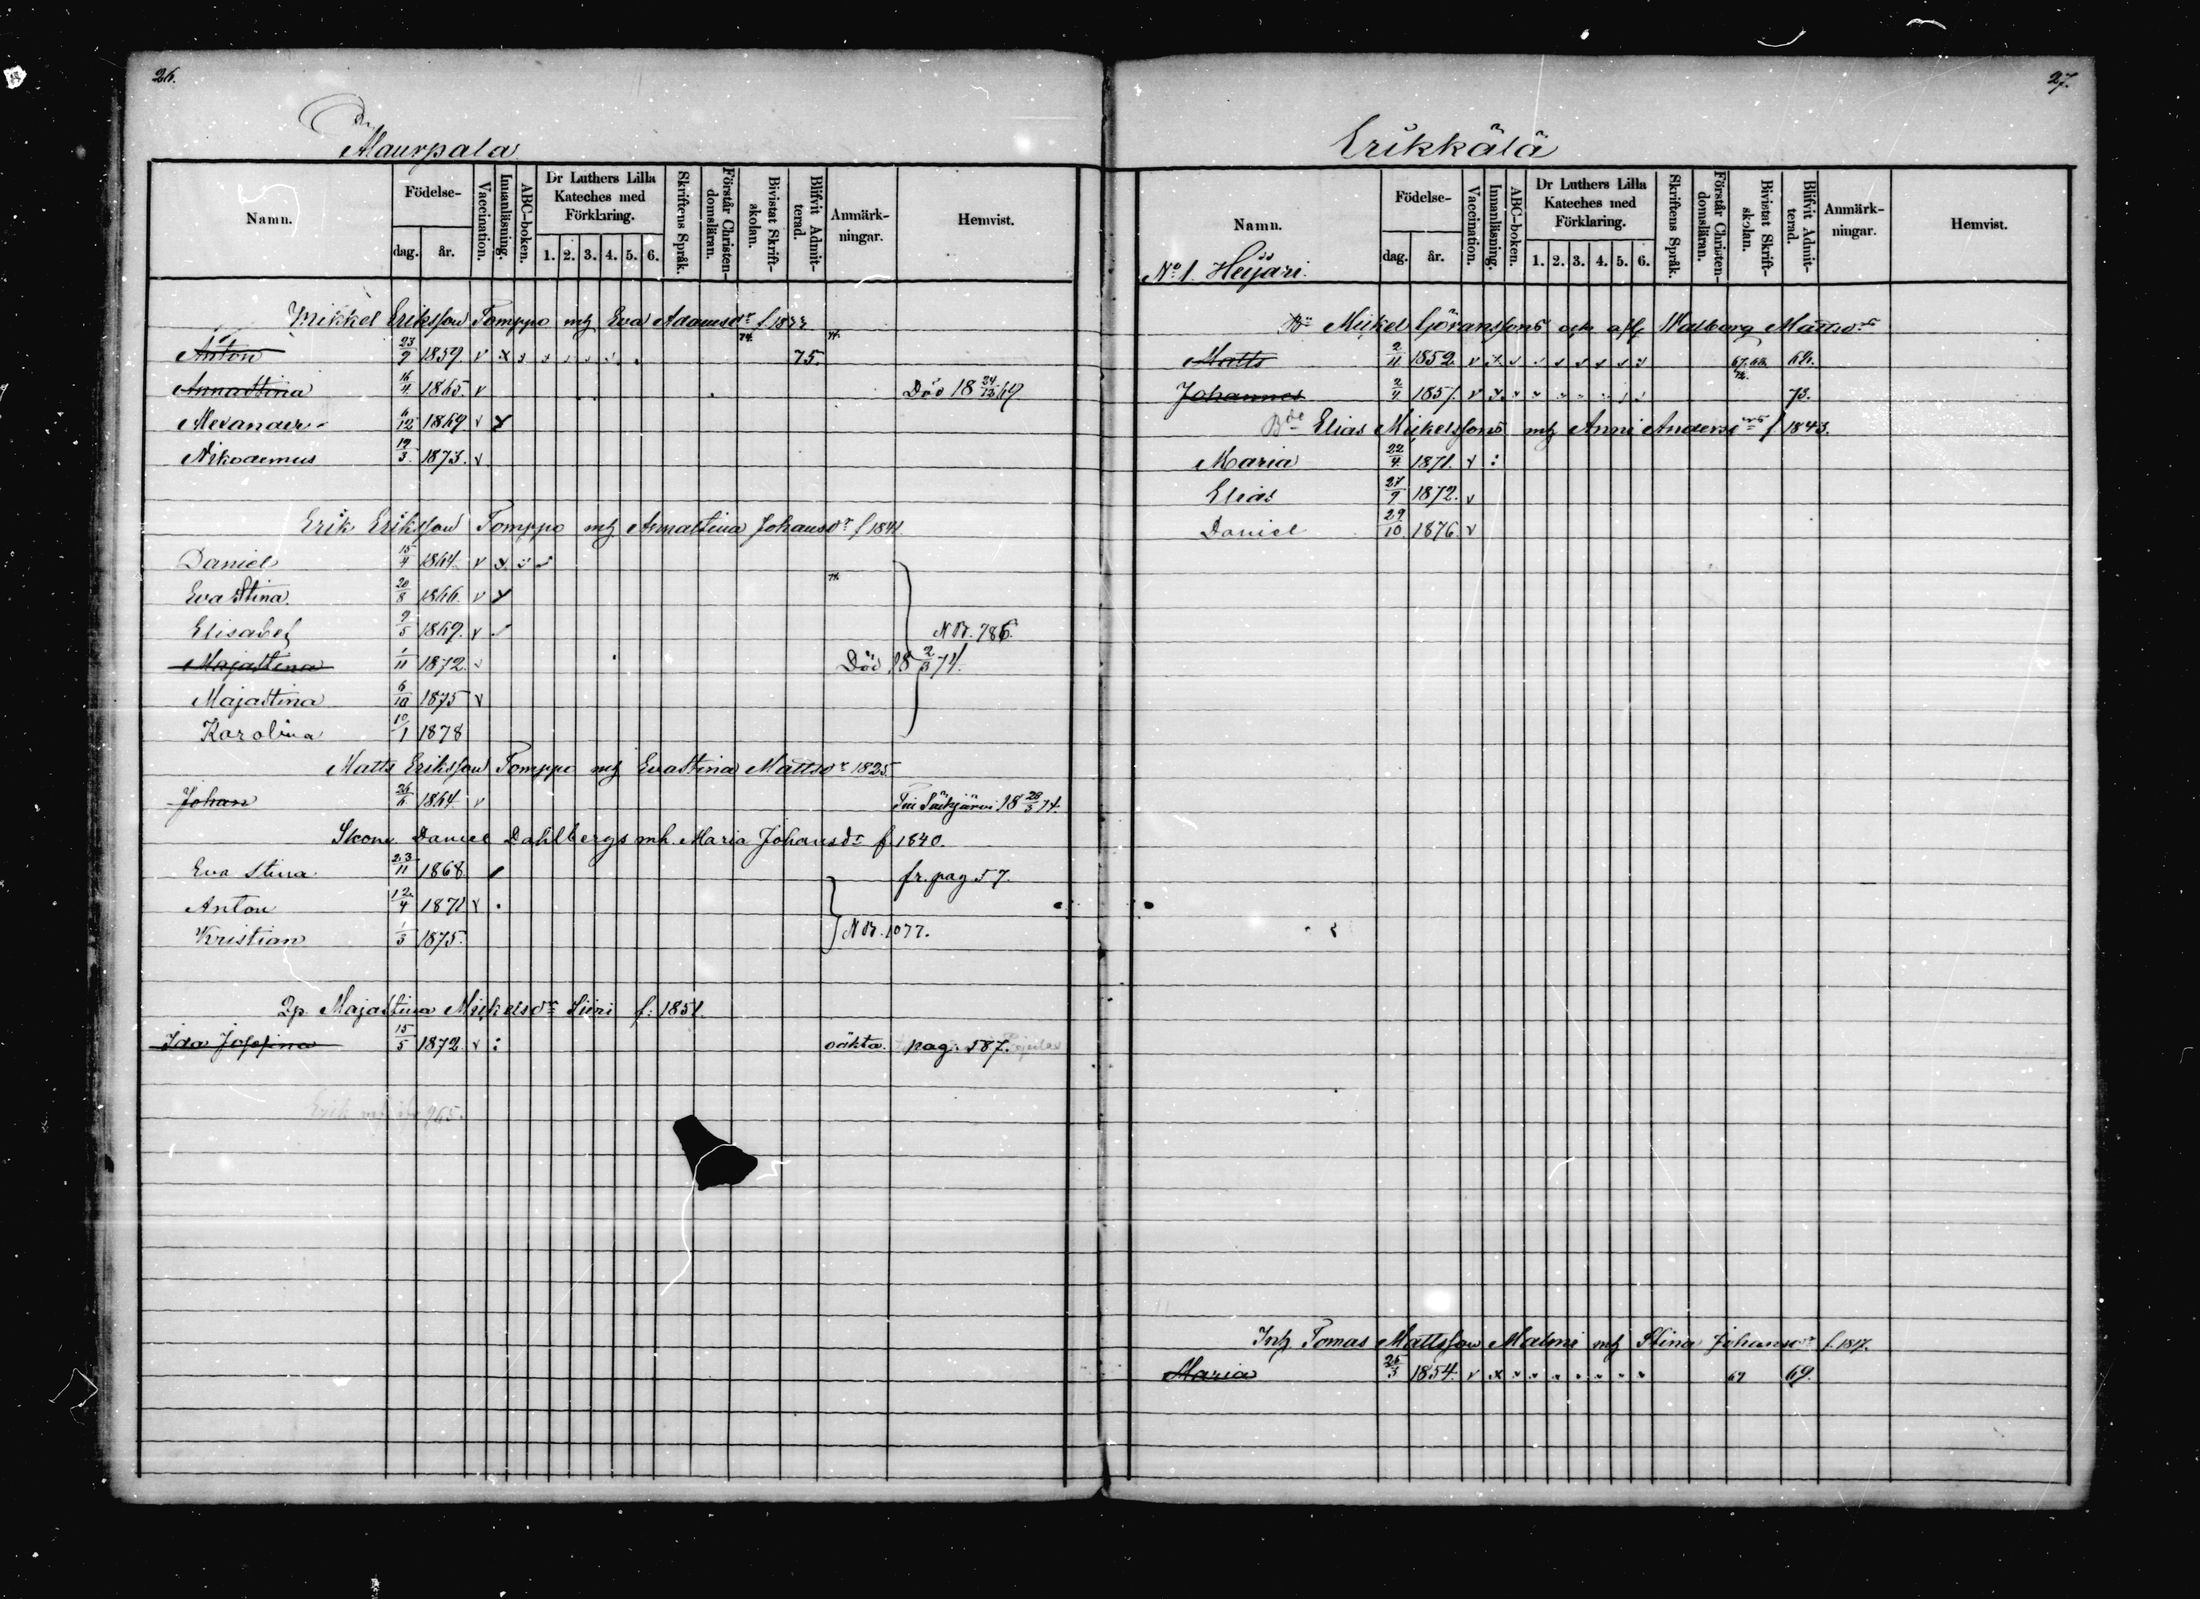 26.
Maurpala
Namn. Födelse- dag. år. Vaccination. Innanläsning. ABC-boken. Dr Luthers Lilla Kateches med Förklaring. 1. 2. 3. 4. 5. 6. Skriftens Språk. Förstår Christendomsläran. Bivistat Skriftskolan. Blifvit Admitterad. Anmärkningar. Hemvist.
Mikkel Eriksson Tomppo mh Eva Adamsdr f 1833
Anton 23/9 1859. v x 74. 75.
Annastina 16/4 1865. v Död 18 24/12 69
Alexander 6/12 1869 v x
Nikodemus 19/3 1873. v
Erik Eriksson Tomppo mh Annastina Johansdr f 1841.
Daniel 15/4 1864. v x
Eva Stina 20/8 1866. v x
Elisabet 9/5 1869. v N Br. 786.
Majastina 1/11 1872. Död 18 2/3 74.
Majastina 6/10 1875 v
Karolina 10/1 1878
Matts Eriksson Tomppo mh Evastina Mattsdr 1825
Johan 26/6 1864 v Säkjärvi 18 28/3 74.
Daniel Dahlbergs mh. Maria Johansdr f. 1840.
Eva Stina 23/11 1868. fr. pag 57.
Anton 12/4 1871 v
Kristian 1/3 1875. N Br. 1077.
Qp. Majastina Mickelsdr Siiri f. 1851.
Ida Josefina 15/5 1872. v : oäkta. pag. 587.
27.
Erikkälä
Namn. Födelse- dag. år. Vaccination. Innanläsning. ABC-boken. Dr Luthers Lilla Kateches med Förklaring. 1. 2. 3. 4. 5. 6. Skriftens Språk. Förstår Christendomsläran. Bivistat Skriftskolan. Blifvit Admitterad. Anmärkningar. Hemvist.
No 1. Heijari.
Mickel Göranssons och afl. Walborg Mattsdr
Matts 2/11 1852. v x 68.
Johannes 2/4 1857. v x 72. 73.
Bde Elias Mickelssons mh Anni Andersdr f 1843.
Maria 22/4 1871. v :
Elias 27/9 1872. v
Daniel 29/10 1876. v
Inh Tomas Mattsson Malmi mh Stina Johansdr f. 1817.
Maria 26/3 1854. v x 69 69.